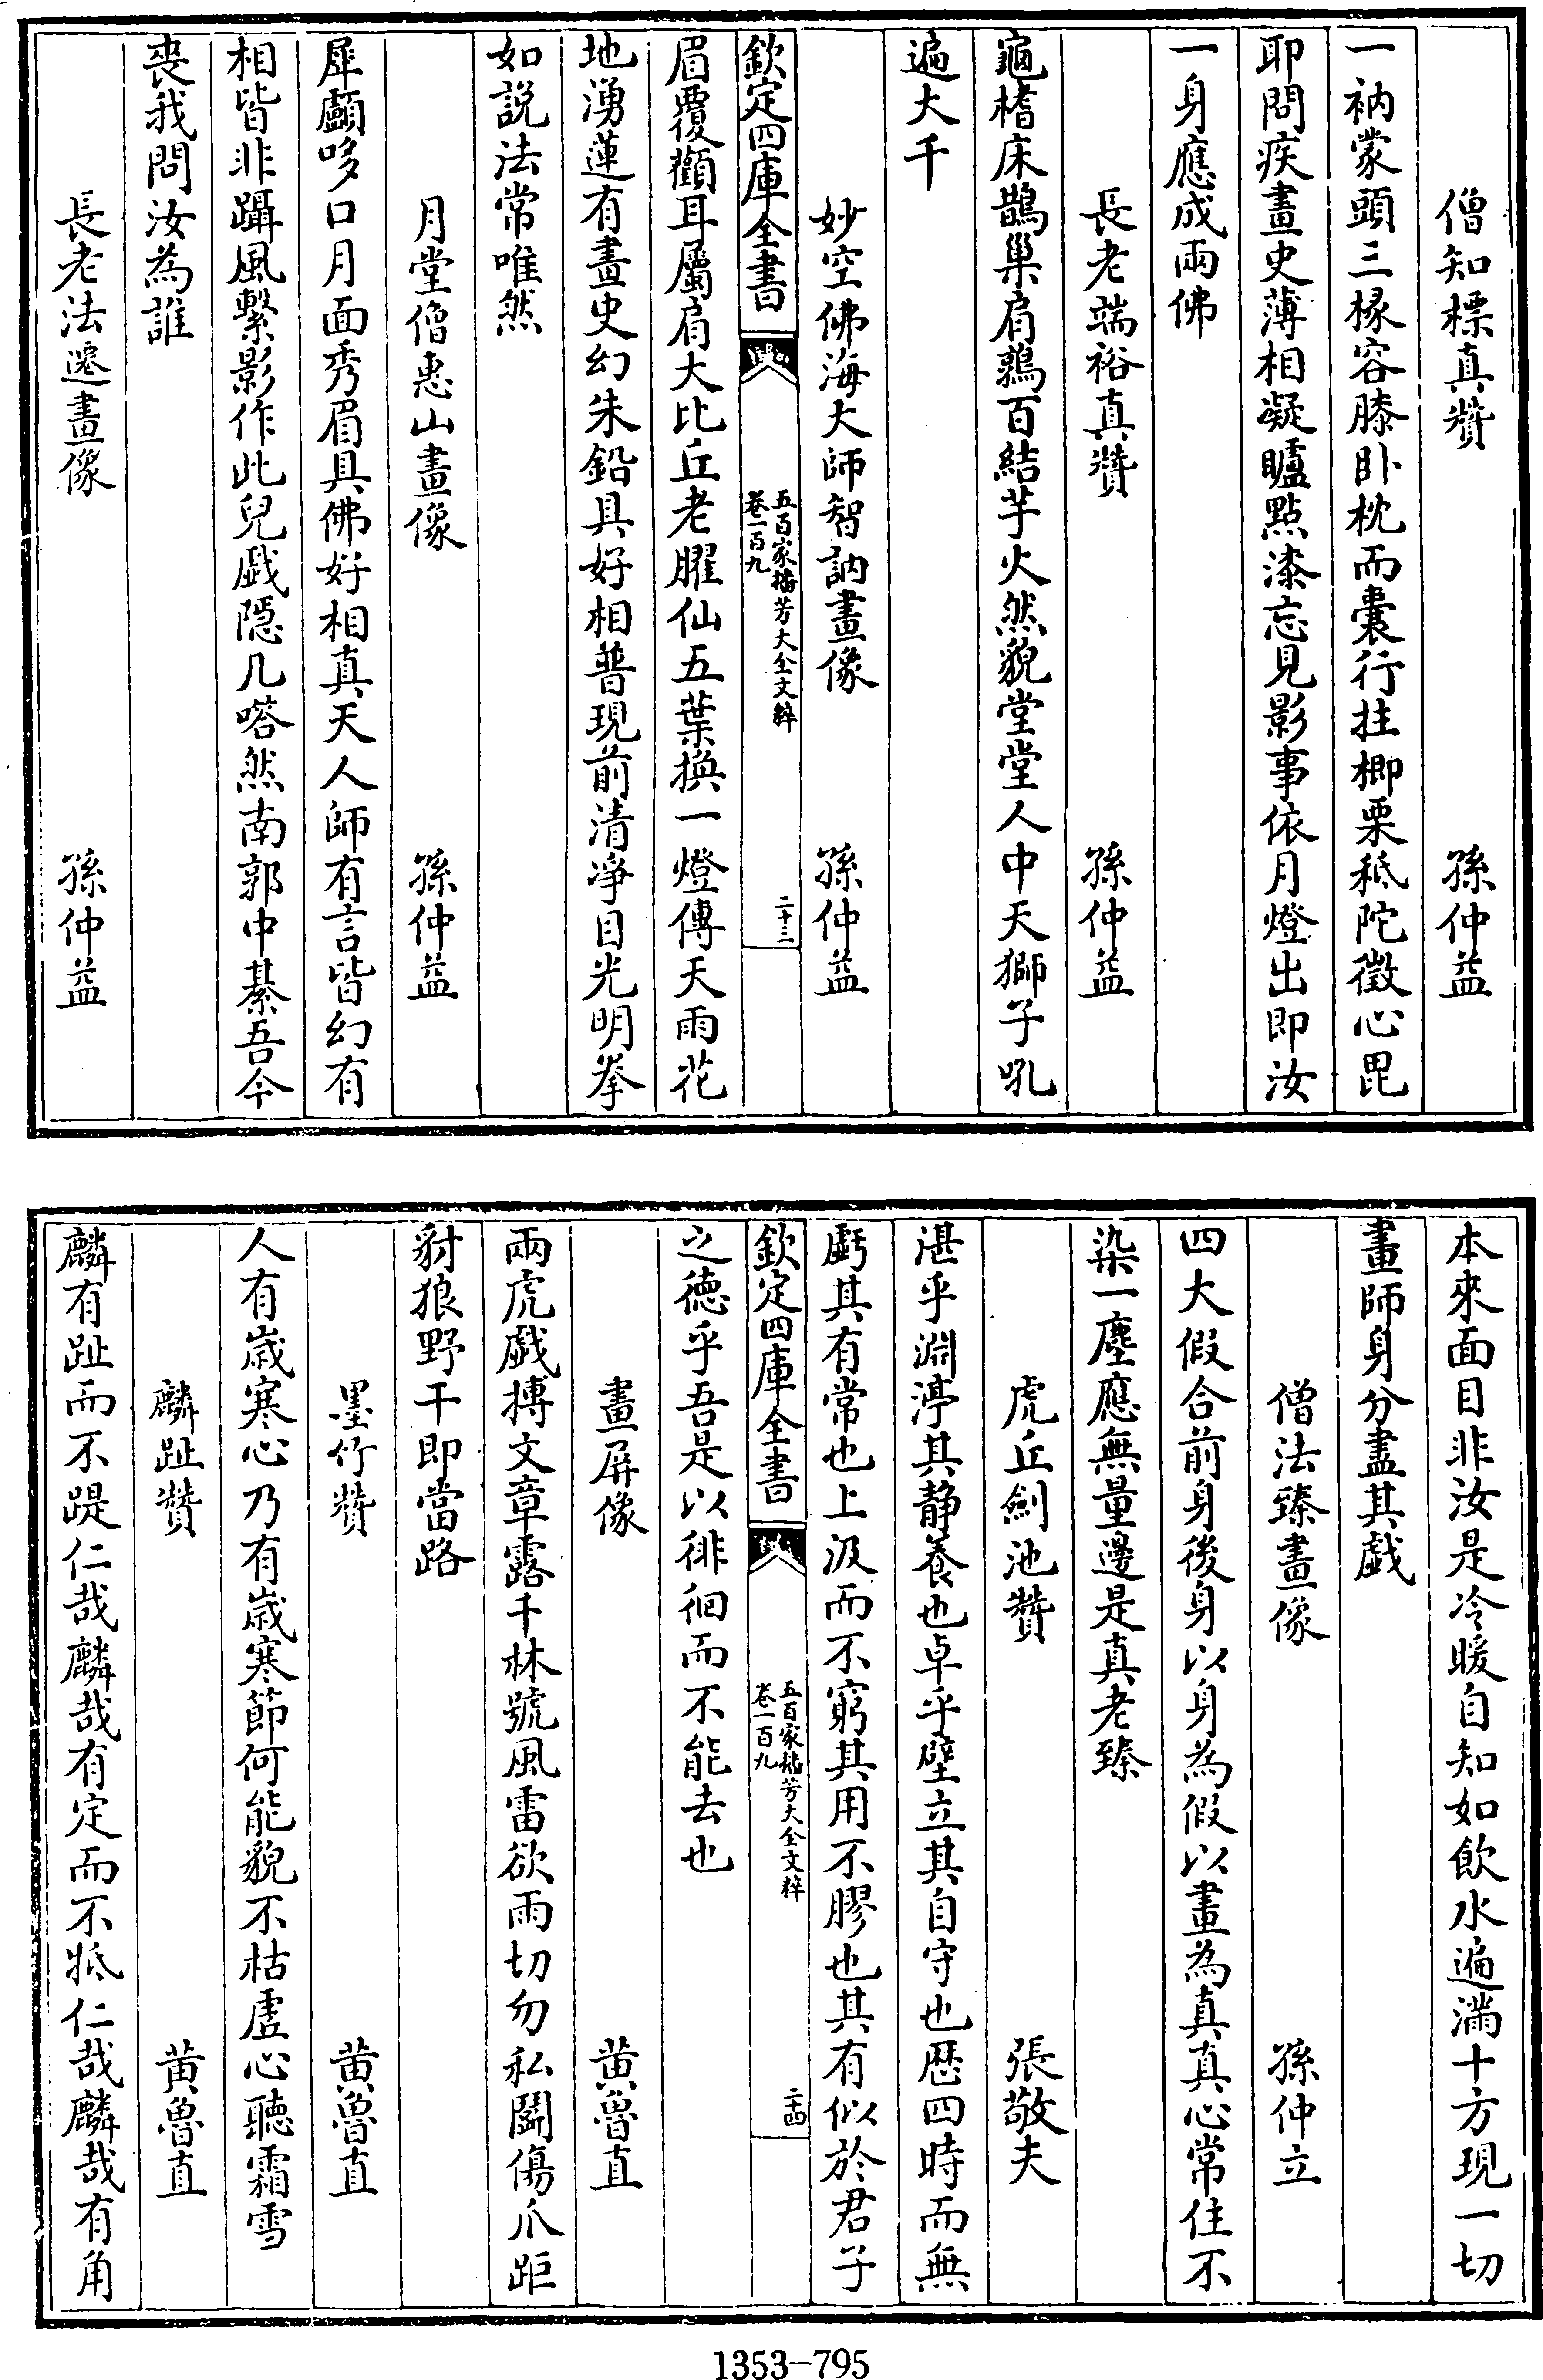 僧知標真贊　孫仲益
一衲蒙頭三椽容膝卧枕而囊行拄楖栗秪陀徵心毘
耶問疾畫史薄相凝矑點漆忘見影事依月燈出即汝
一身應成兩佛
長老端裕真贊　孫仲益
龜楮床鵲巢肩鶉百結芋火然貌堂堂人中天獅子吼
遍大千
妙空佛海大師智訥畫像　孫仲益
欽定四庫全書
五百家播芳大全文粹
卷一百九
二十三
眉覆顴耳屬肩大比丘老臞仙五葉換一燈傳天雨花
地湧蓮有畫史幻朱鉛具好相普現前清凈目光明拳
如説法常唯然
月堂僧惠山畫像　孫仲益
犀顱哆口月面秀眉具佛好相真天人師有言皆幻有
相皆非躡風繫影作此兒戲隱几嗒然南郭中綦吾今
喪我問汝為誰
長老法遷畫像　孫仲益
本來面目非汝是冷暖自知如飲水遍滿十方現一切
畫師身分盡其戲
僧法臻畫像　孫仲立
四大假合前身後身以身為假以畫為真真心常住不
染一塵應無量邊是真老臻
虎丘劍池贊　張敬夫
湛乎淵渟其静養也卓乎壁立其自守也歴四時而無
虧其有常也上汲而不窮其用不膠也其有似於君子
欽定四庫全書
五百家播芳大全文粹
卷一百九
二十四
之德乎吾是以徘徊而不能去也
畫屏像　黄魯直
兩虎戲搏文章露千林號風雷欲雨切勿私鬭傷爪距
豺狼野干即當路
墨竹贊　黄魯直
人有歳寒心乃有歳寒節何能貌不枯虛心聽霜雪
麟趾贊　黄魯直
麟有趾而不踶仁哉麟哉有定而不牴仁哉麟哉有角
1353-795